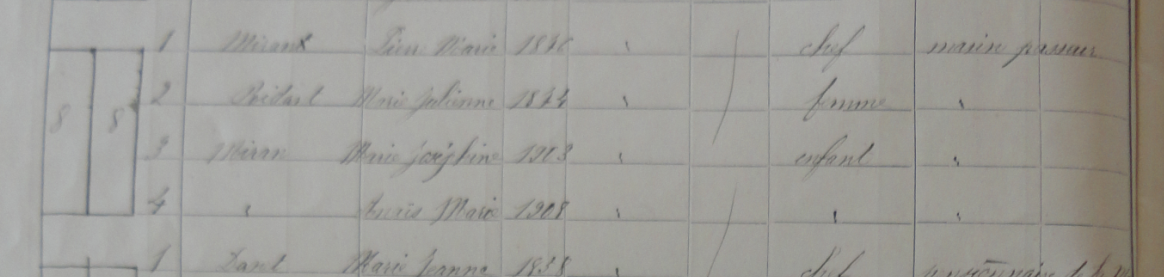 8 8 1 Mirant Pierre Marie 1876 " chef marin passeur
2 Marie Julienne 1874 " femme "
3 Miran Marie Joséphine 1903 " enfant "
4 " Marie 1908 " " "
1 Danet Marie Jeanne 1838 " chef